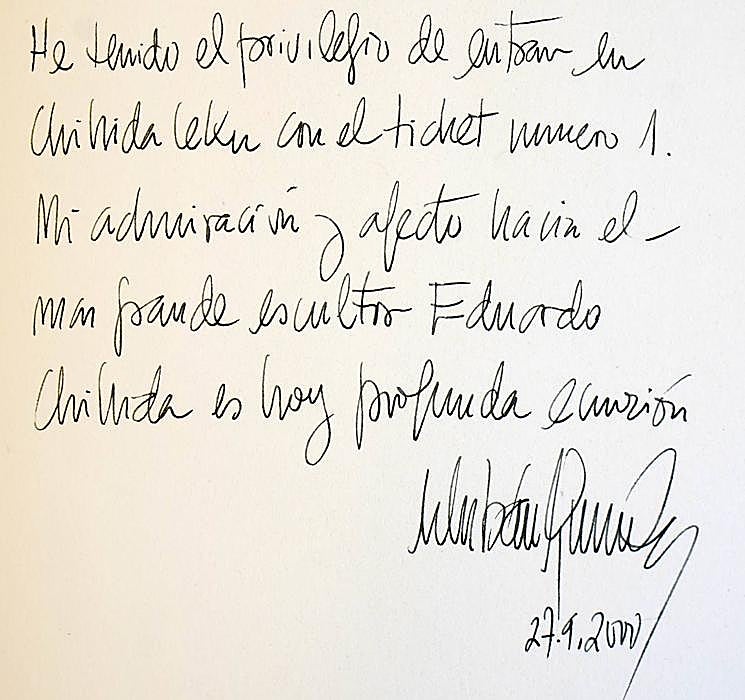 He tenido el privilegio de entrar en
Chillida leku con el ticket numero 1.
Mi admiración y afecto hacia el
mas grande escultor Eduardo
Chillida es hoy profunda emoción
27.9.2000